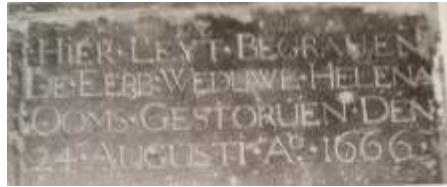 HIER·LEYT·BEGRAVEN
DE·EERB·WEDUWE·HELENA
OOMS·GESTORUEN·DEN
24·AUGUSTI·Aº·1666